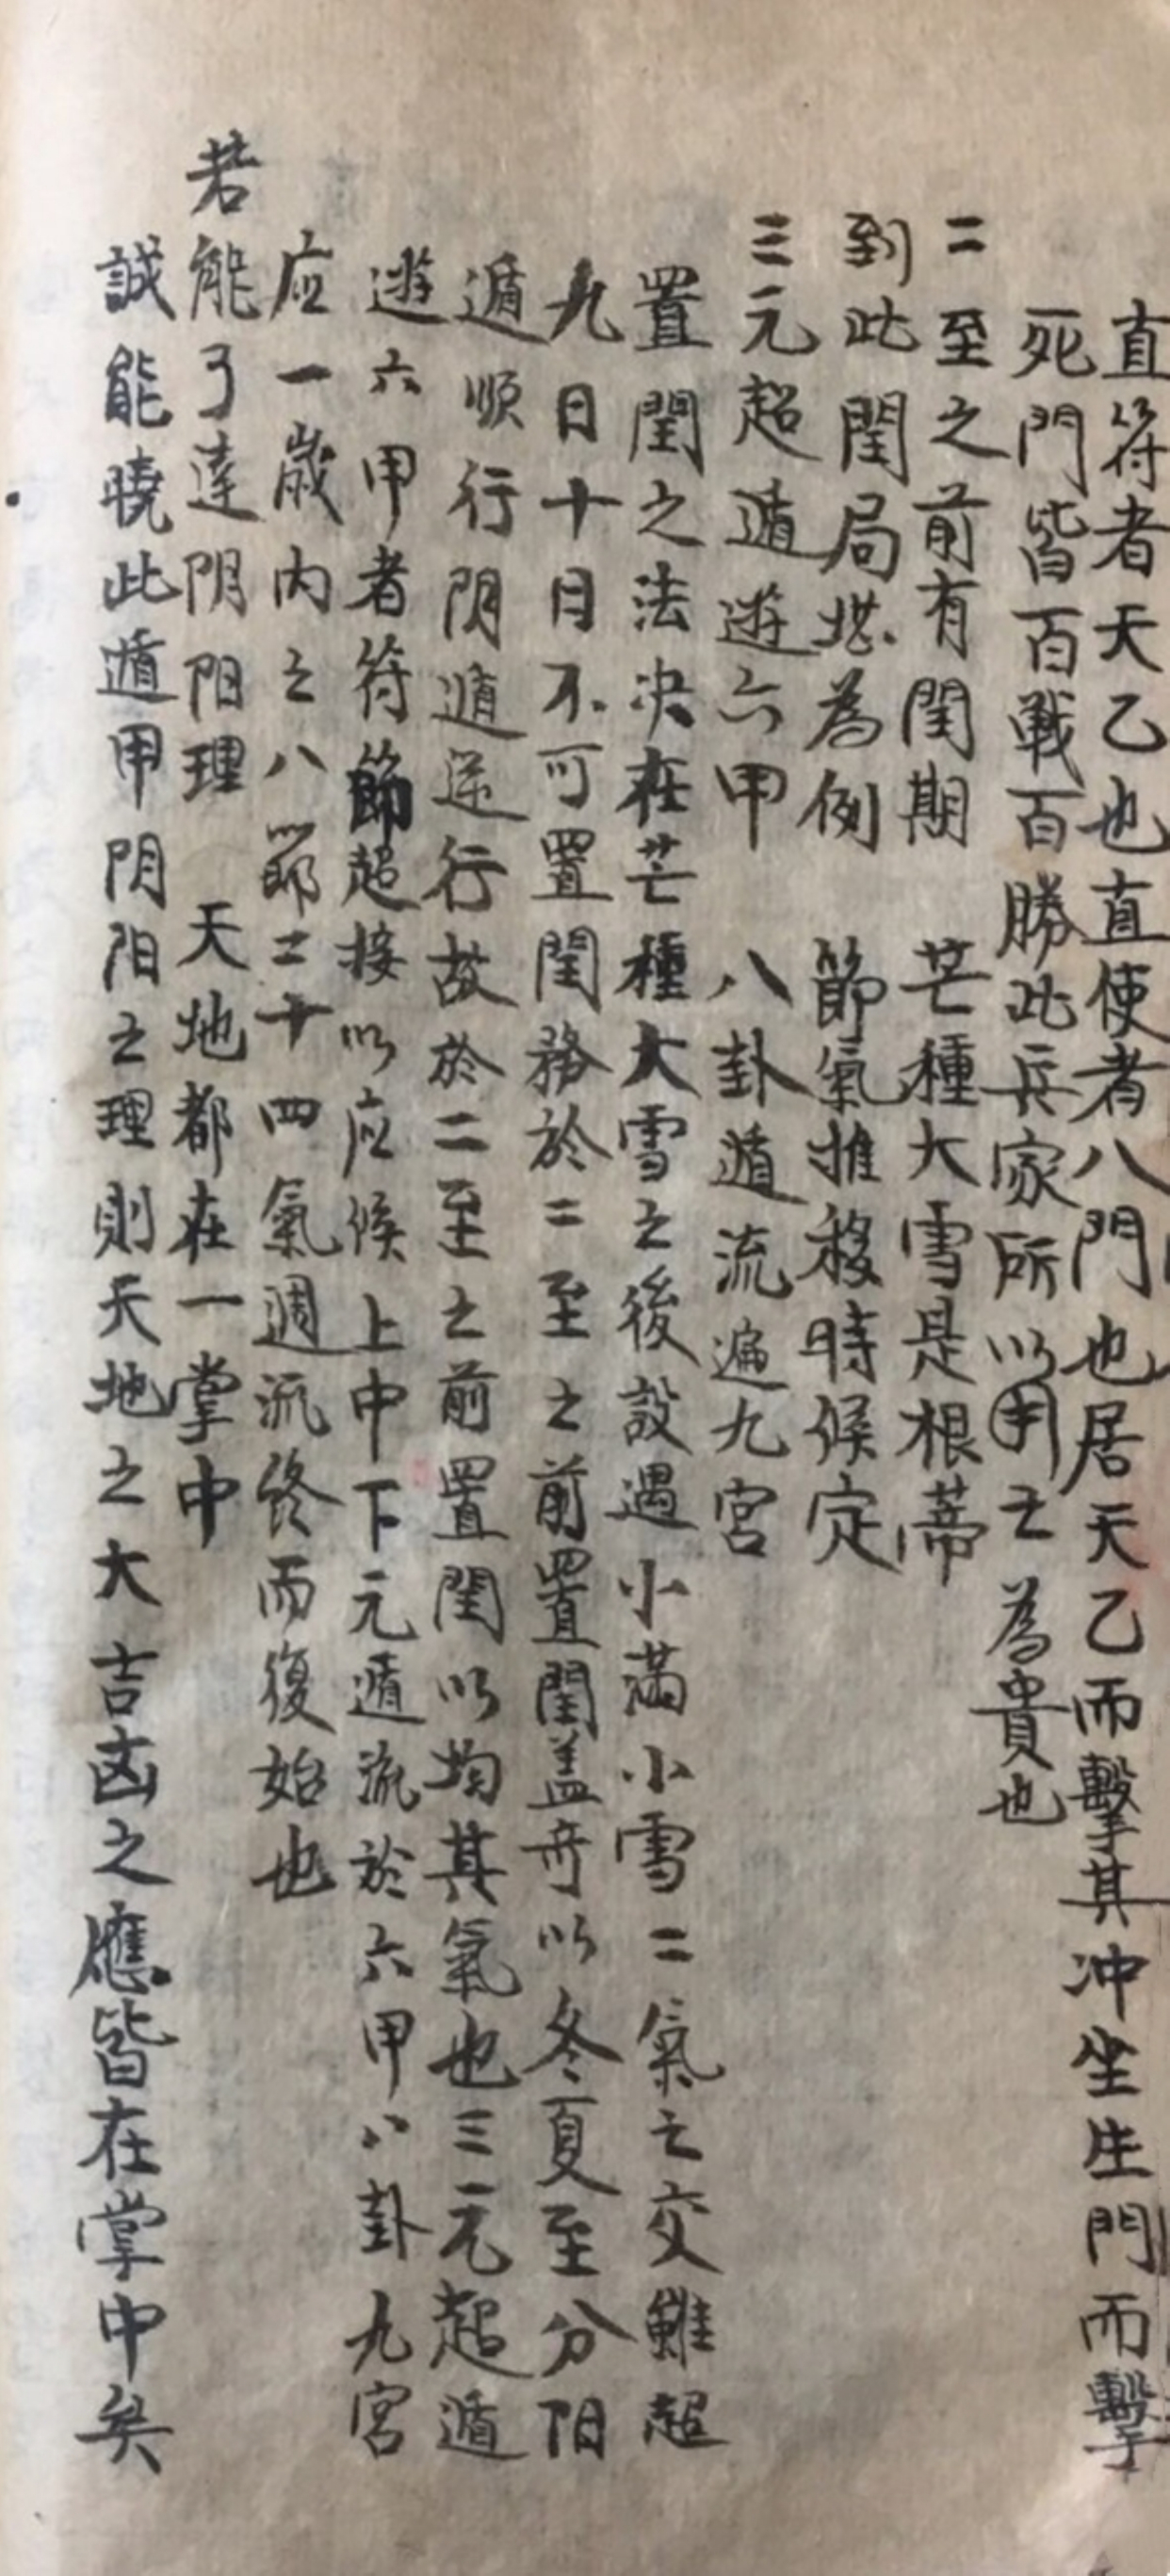 直符者天乙也直使者八門也居天乙而擊其冲坐生門而擊
死門皆百戰百勝此兵家所以判之為貴也
二至之前有閏期　芒種大雪是根蒂
到此閏局堪為例　節氣推移時候定
三元超遁遊六甲　八卦遁流遍九宮
置閏之法决在芒種大雪之後設遇小滿小雪二氣之交雖超
九日十日不可置閏務於二至之前置閏盖奇以冬夏至分阳
遁順行阴遁逆行故於二至之前置閏以均其氣也三元超遁
遊六甲者符節超接以应候上中下元遁流於六甲八卦九宮
应一歲内之八節二十四氣週流终而復始也
若能了達阴阳理　天地都在一掌中
誠能曉此遁甲阴阳之理則天地之大吉凶之應皆在掌中矣